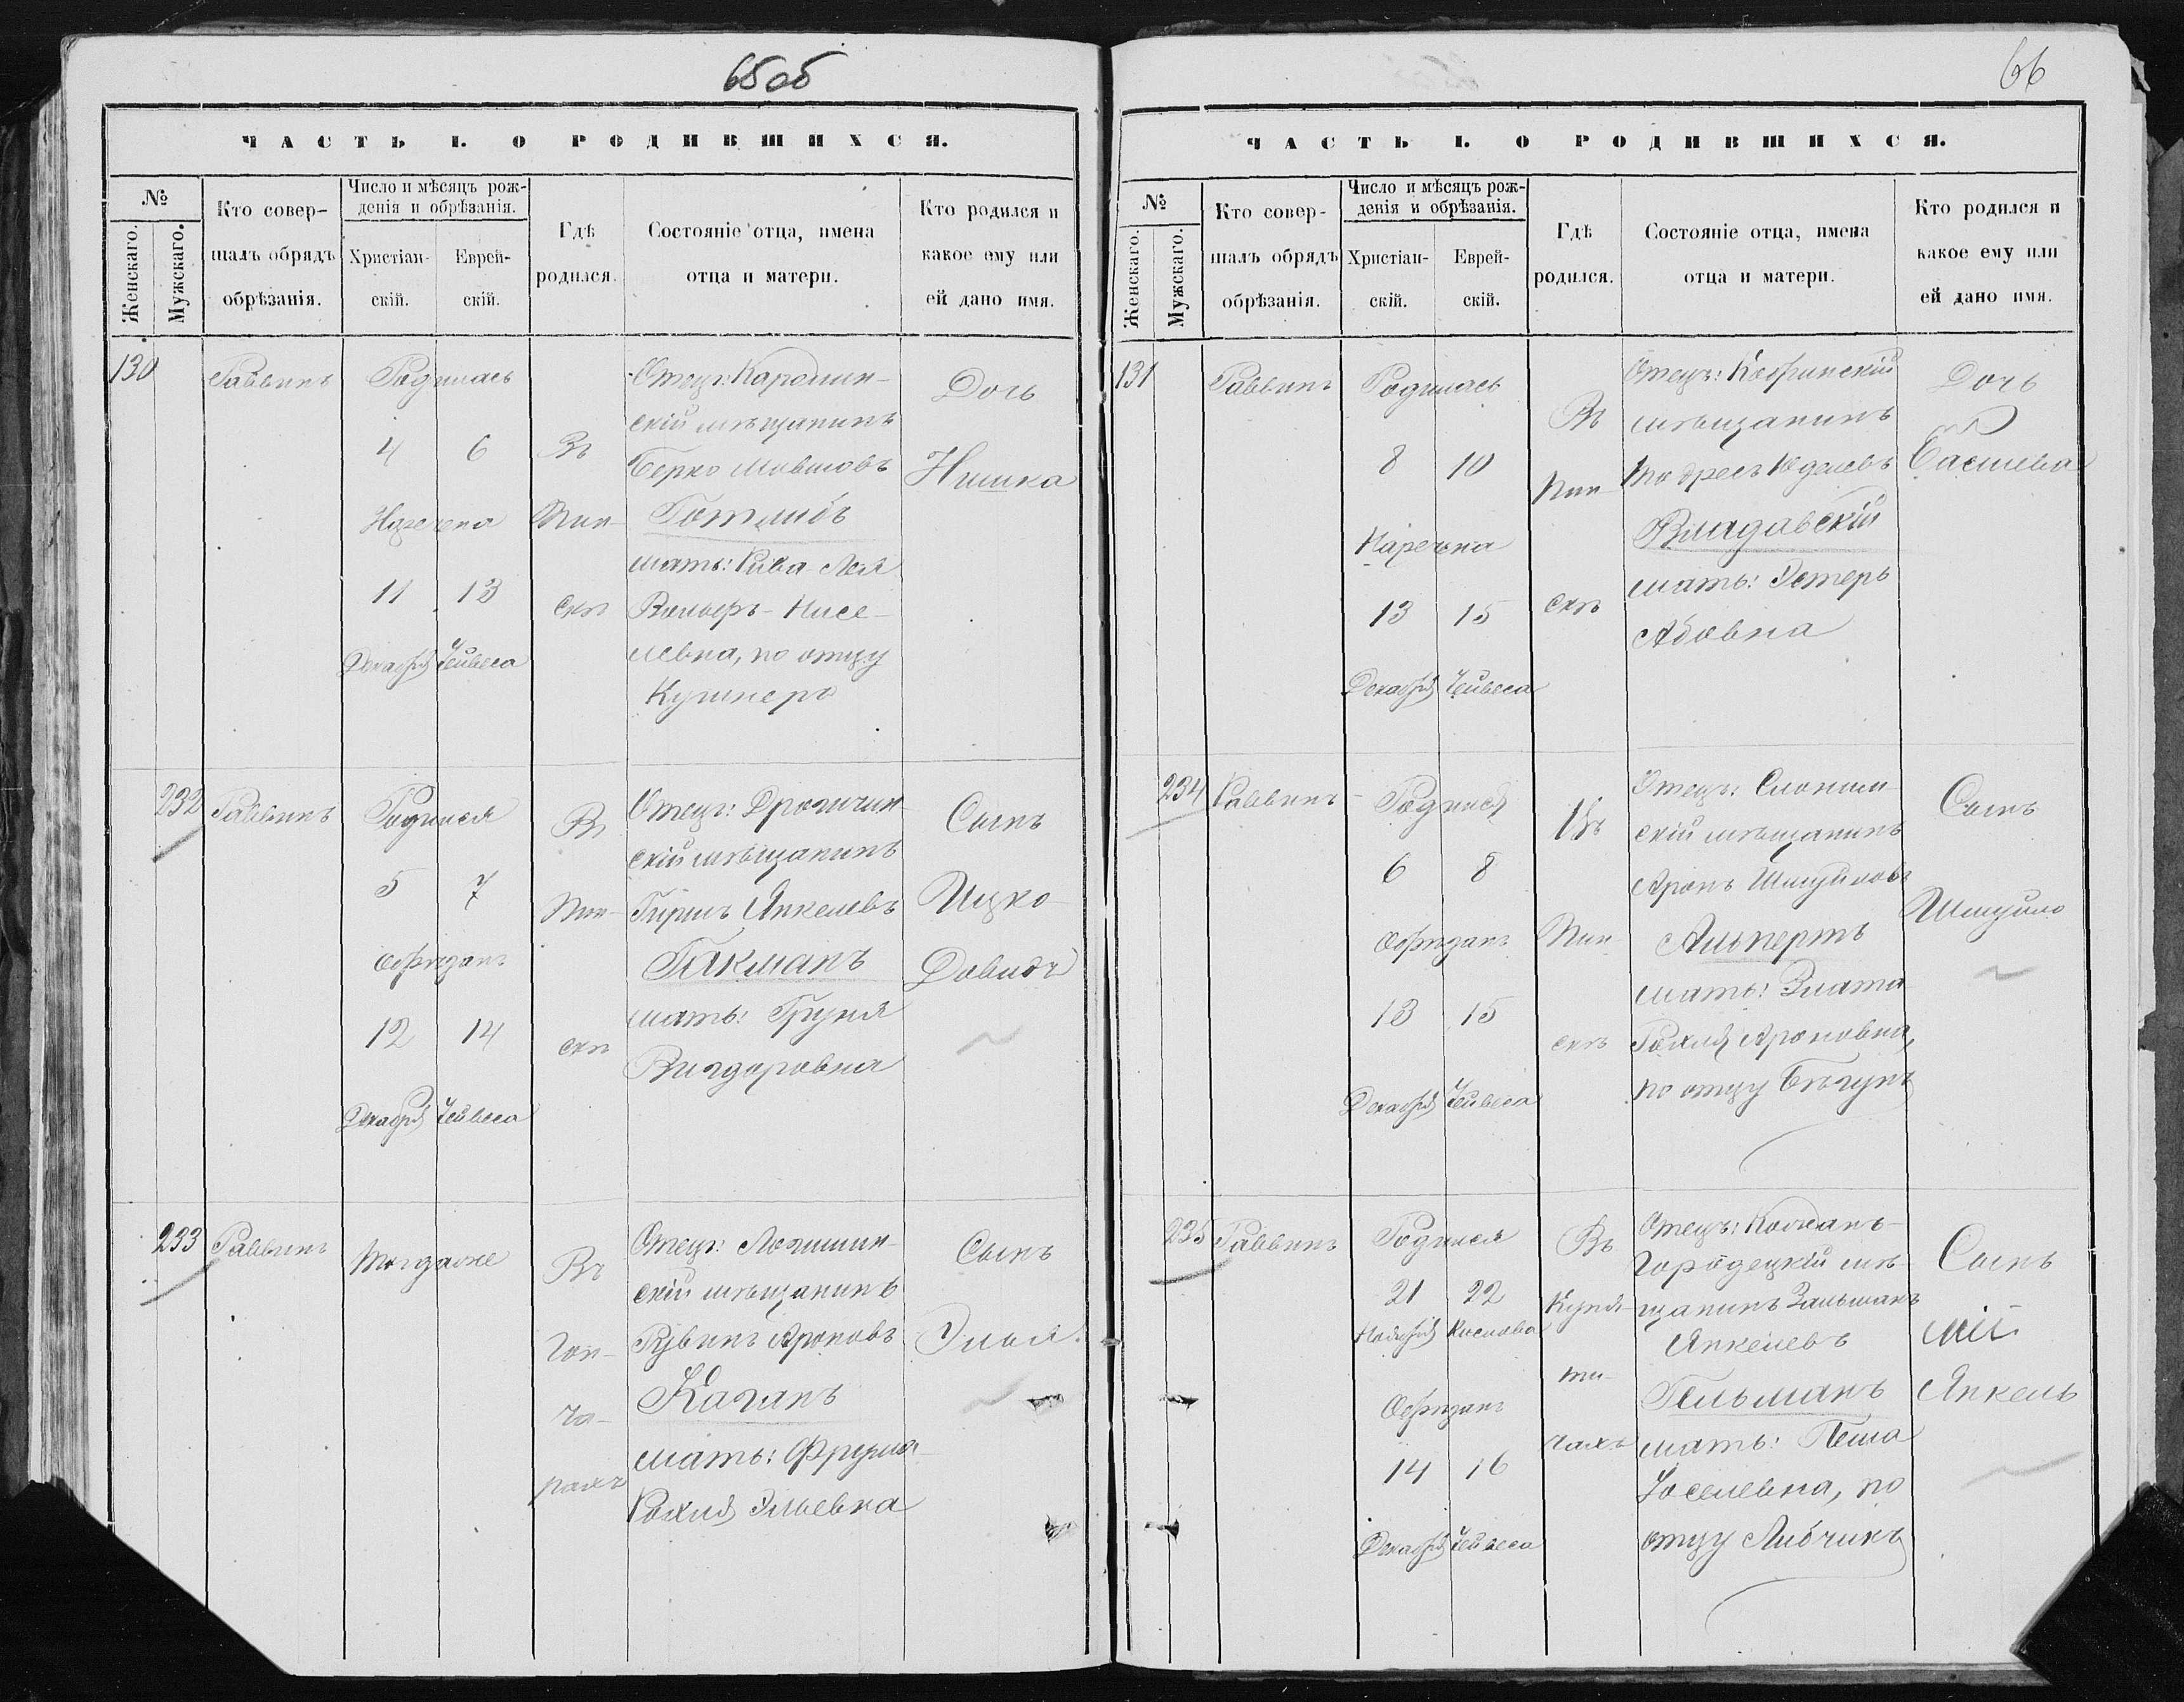 65об
ЧАСТЬ I. О РОДИВШИХСЯ.
№
Женскаго.
Мужскаго.
Кто совер-
шалъ обрядъ
обрѣзанія.
Число и мѣсяцъ рож-
денія и обрѣзанія.
Христіан-
скій.
Еврей-
скій.
Гдѣ
родился.
Состояніе отца, имена
отца и матери.
Кто родился и
какое ему или
ей дано имя.
130
Раввинъ
Родилась
4 6
Наречена
11 13
Декабря Тейвеса
Въ
Пин-
скѣ
Отецъ: Каролин-
скій мѣщанинъ
Берко Мовшовъ
Готлибъ
мать: Рива-Лея
Нисе-
левна, по отцу
Кушнеръ
Дочь
Нишка
232
Раввинъ
Родился
5 7
Обрѣзанъ
12 14
Декабря Тейвеса
Въ
Пин-
скѣ
Отецъ: Дрогичин-
скій мѣщанинъ
Гиршъ Янкелевъ
Гакманъ
мать: Груня
Вигдоровна
Сынъ
Ицко-
Довидъ
233
Раввинъ
Тогда же
Въ
Гон-
ча-
рахъ
Отецъ: Логишин-
скій мѣщанинъ
Рувинъ Ароновъ
Каганъ
мать: Фрума-
Рохля Эльевна
Сынъ
Элья
66
ЧАСТЬ I. О РОДИВШИХСЯ.
№
Женскаго.
Мужскаго.
Кто совер-
шалъ обрядъ
обрѣзанія.
Число и мѣсяцъ рож-
денія и обрѣзанія.
Христіан-
скій.
Еврей-
скій.
Гдѣ
родился.
Состояніе отца, имена
отца и матери.
Кто родился и
какое ему или
ей дано имя.
131
Раввинъ
Родилась
8 10
Наречена
13 15
Декабря Тейвеса
Въ
Пин-
скѣ
Отецъ: Кобринскій
мѣщанинъ
Тодресъ Юделевъ
Влодавскій
мать: Эстеръ
Абовна
Дочь
Басшева
234
Раввинъ
Родился
6 8
Обрѣзанъ
13 15
Декабря Тейвеса
Въ
Пин-
скѣ
Отецъ: Слоним-
скій мѣщанинъ
Аронъ Шмуйловъ
Альпертъ
мать: Злата
Рохля Ароновна,
по отцу Бѣгунъ
Сынъ
Шмуйло
235
Раввинъ
Родился
21 22
Ноября Кислова
Обрѣзанъ
14 16
Декабря Тейвеса
Въ
Купя-
ти-
чахъ
Отецъ: Кожанъ-
Городецкій мѣ-
щанинъ Зальманъ
Янкелевъ
Гельманъ
мать: Пеша
Іоселевна, по
отцу Либчикъ
Сынъ
Янкель